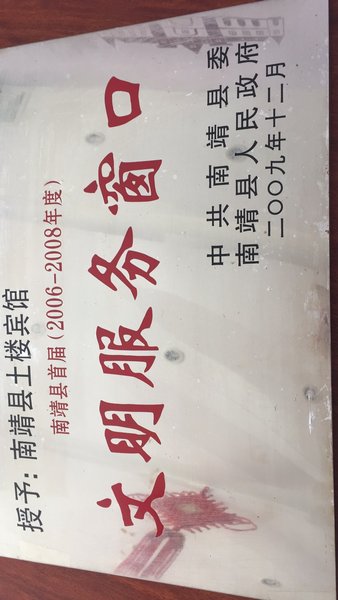 授予：南靖县土楼宾馆
南靖县首届（2006-2008年度）
文明服务窗口
中共南靖县委
南靖县人民政府
二〇〇九年十二月